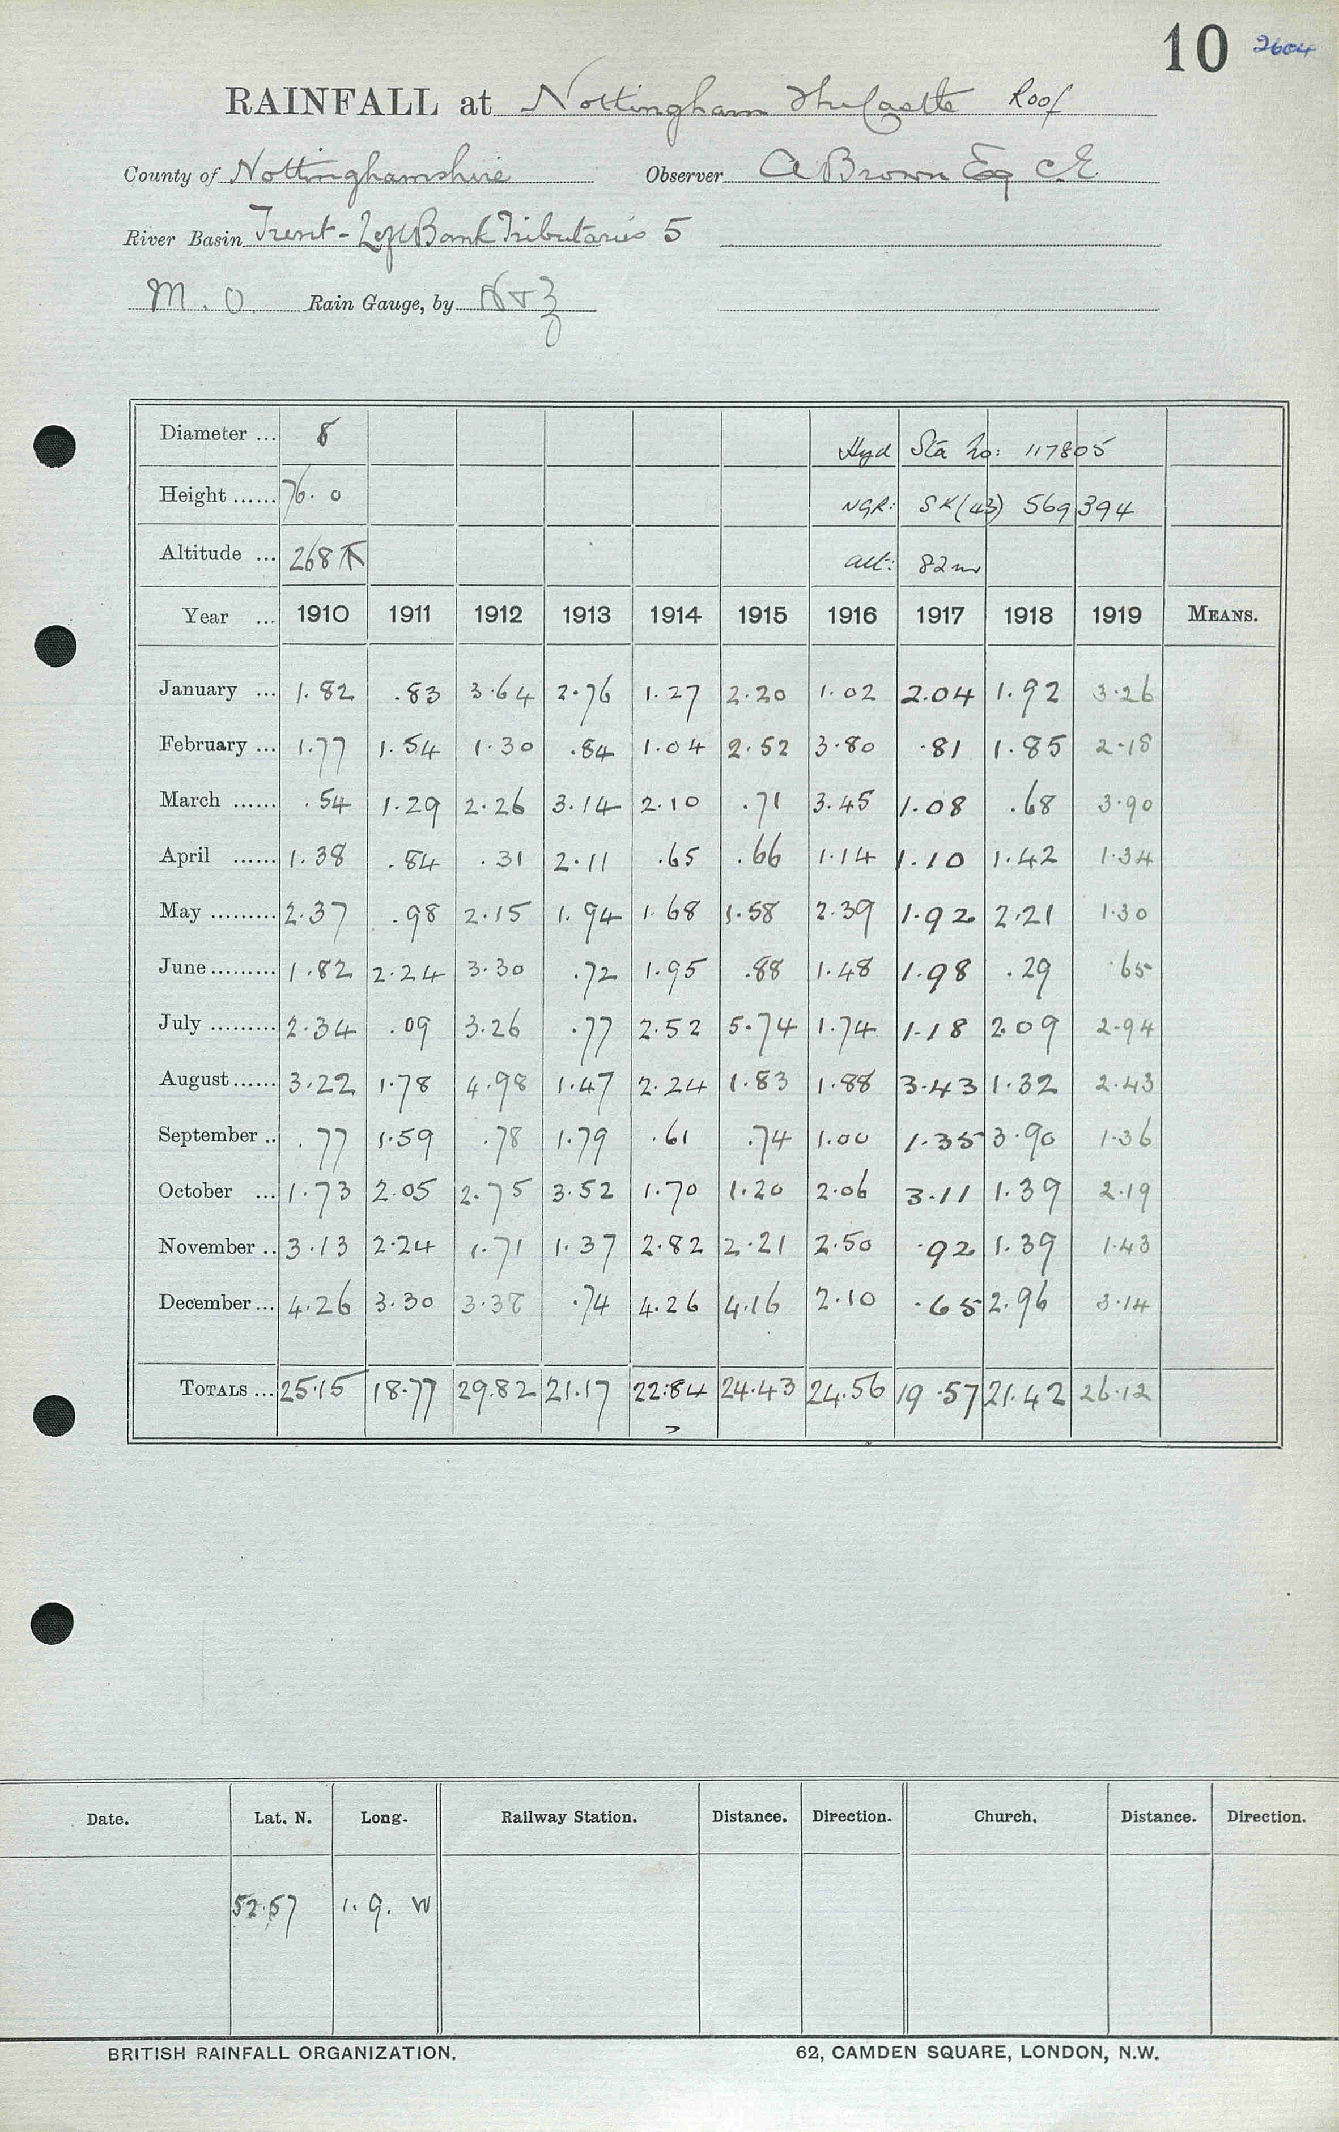 10 2604
RAINFALL at Nottingham The Castle Roof
County of Nottinghamshire Observer A Brown Esq C.E.
River Basin Trent - Left Bank Tributaries 5
M. O. Rain Gauge, by N+Z
Diameter ... 8 Hyd Sta No: 117805
Height ...... 76.0 NGR: SK(43) 569394
Altitude ... 268 Alt: 82m
Year ... 1910 1911 1912 1913 1914 1915 1916 1917 1918 1919 MEANS.
January ... 1.82 .83 3.64 2.76 1.27 2.20 1.02 2.04 1.92 3.26
February ... 1.77 1.54 1.30 .84 1.04 2.52 3.80 .81 1.85 2.18
March ...... .54 1.29 2.26 3.14 2.10 .71 3.45 1.08 .68 3.90
April ...... 1.38 .84 .31 2.11 .65 .66 1.14 1.10 1.42 1.34
May ......... 2.37 .98 2.15 1.94 1.68 1.58 2.39 1.92 2.21 1.30
June ......... 1.82 2.24 3.30 .72 1.95 .88 1.48 1.98 .29 .65
July ......... 2.34 .09 3.26 .77 2.52 5.74 1.74 1.18 2.09 2.94
August ...... 3.22 1.78 4.98 1.47 2.24 1.83 1.88 3.43 1.32 2.43
September .. .77 1.59 .78 1.79 .61 .74 1.00 1.35 3.90 1.36
October ... 1.73 2.05 2.75 3.52 1.70 1.20 2.06 3.11 1.39 2.19
November .. 3.13 2.24 1.71 1.37 2.82 2.21 2.50 .92 1.39 1.43
December ... 4.26 3.30 3.38 .74 4.26 4.16 2.10 .65 2.96 3.14
TOTALS ... 25.15 18.77 29.82 21.17 22.84 24.43 24.56 19.57 21.42 26.12
Date. Lat. N. Long. Railway Station. Distance. Direction. Church. Distance. Direction.
52.57 1.9. W
BRITISH RAINFALL ORGANIZATION. 62, CAMDEN SQUARE, LONDON, N.W.